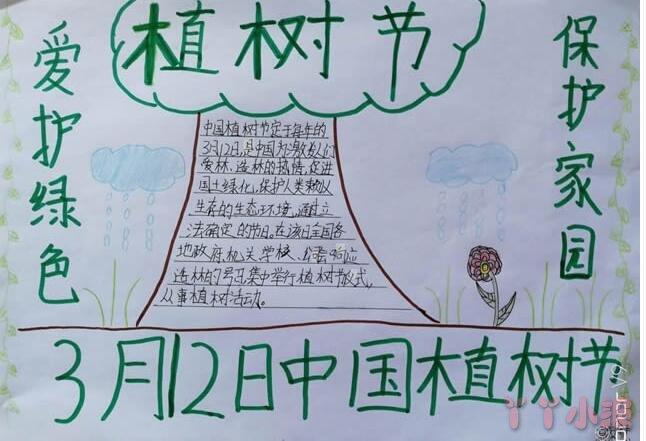 植树节
爱护绿色
保护家园
中国植树节定于每年的
3月12日,是中国为激发人们
爱林、造林的热情,促进
国土绿化,保护人类赖以
生存的生态环境,通过立
法确定的节日。在该日全国各
地政府、机关、学校、公众响应
造林的号召集中举行植树节仪式,
从事植树活动。
3月12日中国植树节
丫丫小
honor V9